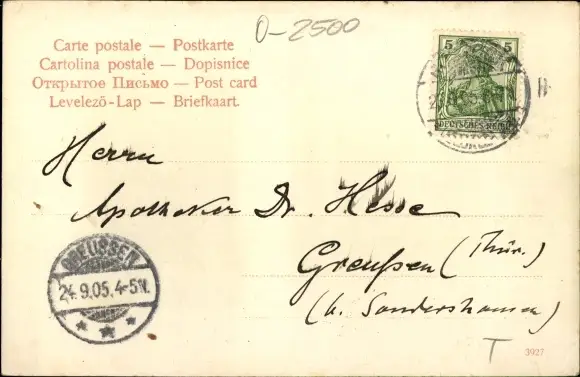 0-2500
Carte postale — Postkarte
Cartolina postale — Dopisnice
Открытое Письмо — Post card
Levelező-Lap — Briefkaart.
5
DEUTSCHES REICH
Herrn
Apotheker Dr. Hesse
Greußen (Thür.)
(b. Sondershausen)
GREUSSEN
24.9.05. 4-5N.
T
3927